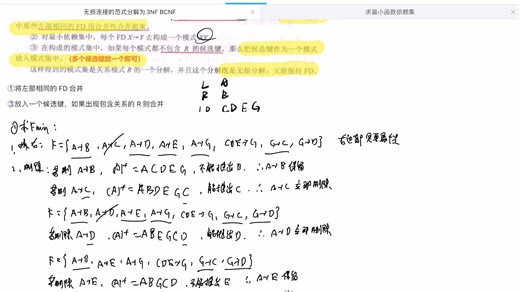 无损连接的范式分解为 3NF BCNF
求最小函数依赖集
中那些左部相同的 FD 用合并性合并起来。
② 对最小依赖集中，每个 FD X→Y 去构成一个模式
③ 在构成的模式集中，如果每个模式都不包含 R 的候选键，那么把候选键作为一个模式
放入模式集中。（多个候选键放一个即可）
这样得到的模式集是关系模式 R 的一个分解，并且这个分解既是无损分解，又能保持 FD。
①将左部相同的 FD 合并
③放入一个候选键，如果出现包含关系的 R 则合并
L A
R B
LR CDEG
①求Fmin：
F={A→B, A→C, A→D, A→E, A→G, CDE→G, G→C, G→D}
A→B, (A)+=ACDEG, 不能推出B ∴A→B 保留
A→C, (A)+=ABDEGC, 能推出C ∴A→C 立即删除
F={A→B, A→D, A→E, A→G, CDE→G, G→C, G→D}
A→D, (A)+=ABEGCD, 能推出D ∴A→D 立即删除
F={A→B, A→E, A→G, CDE→G, G→C, G→D}
A→E, (A)+=ABGCD, 不能推出E ∴A→E 保留